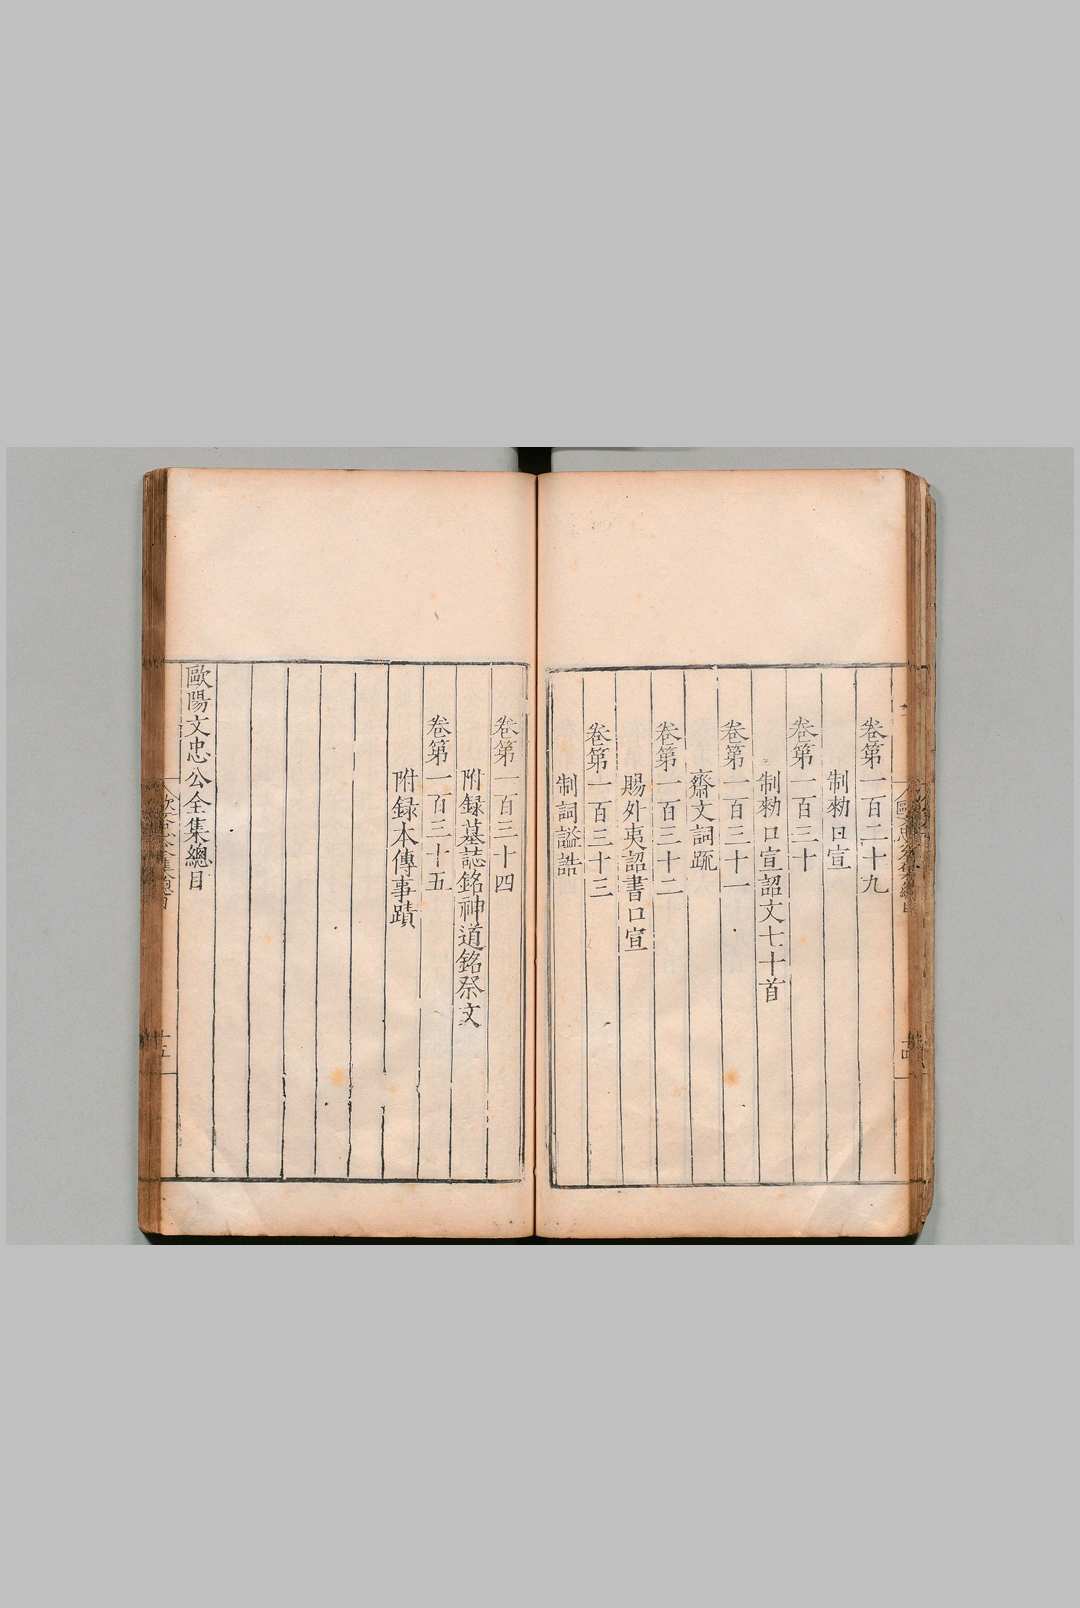 卷第一百二十九
制勑口宣
卷第一百三十
制勑口宣詔文七十首
卷第一百三十一
齋文詞䟽
卷第一百三十二
賜外夷詔書口宣
卷第一百三十三
制詞謚誥
卷第一百三十四
附録墓誌銘神道銘祭文
卷第一百三十五
附録本傳事蹟
歐陽文忠公全集總目
十五